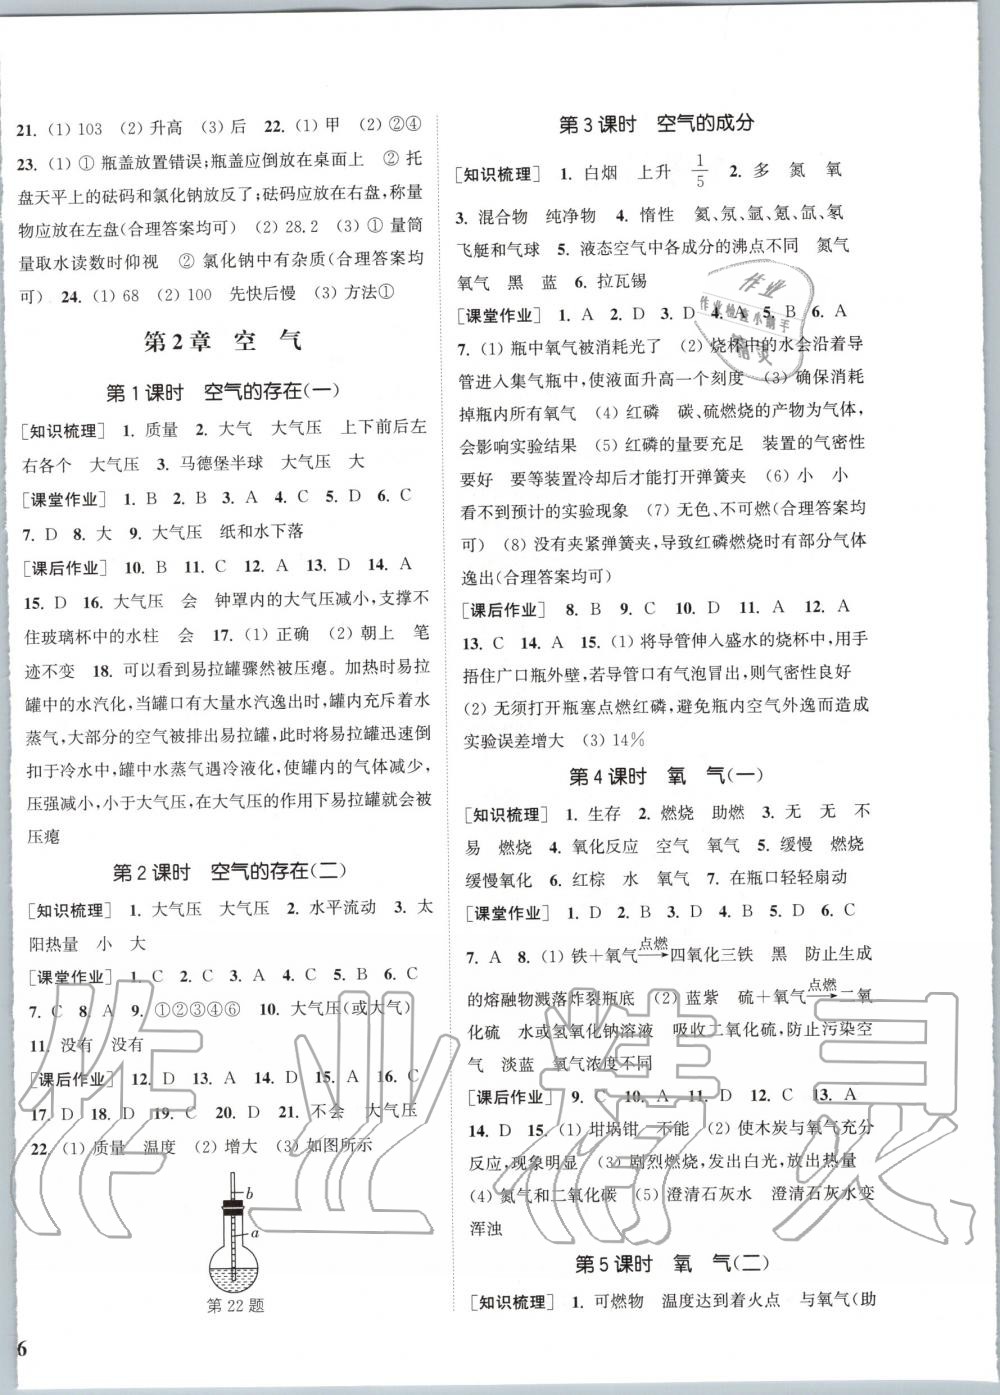 21. (1) 103 (2) 升高 (3) 后 22. (1) 甲 (2) ②④
23. (1) ① 瓶盖放置错误;瓶盖应倒放在桌面上 ② 托
盘天平上的砝码和氯化钠放反了;砝码应放在右盘,称量
物应放在左盘(合理答案均可) (2) 28.2 (3) ① 量筒
量取水读数时仰视 ② 氯化钠中有杂质(合理答案均
可) 24. (1) 68 (2) 100 先快后慢 (3) 方法①
第2章 空 气
第1课时 空气的存在(一)
[知识梳理] 1. 质量 2. 大气 大气压 上下前后左
右各个 大气压 3. 马德堡半球 大气压 大
[课堂作业] 1. B 2. B 3. A 4. C 5. D 6. C
7. D 8. 大 9. 大气压 纸和水下落
[课后作业] 10. B 11. C 12. A 13. D 14. A
15. D 16. 大气压 会 钟罩内的大气压减小,支撑不
住玻璃杯中的水柱 会 17. (1) 正确 (2) 朝上 笔
迹不变 18. 可以看到易拉罐骤然被压瘪。加热时易拉
罐中的水汽化,当罐口有大量水汽逸出时,罐内充斥着水
蒸气,大部分的空气被排出易拉罐,此时将易拉罐迅速倒
扣于冷水中,罐中水蒸气遇冷液化,使罐内的气体减少,
压强减小,小于大气压,在大气压的作用下易拉罐就会被
压瘪
第2课时 空气的存在(二)
[知识梳理] 1. 大气压 大气压 2. 水平流动 3. 太
阳热量 小 大
[课堂作业] 1. C 2. C 3. A 4. C 5. D 6. C
7. C 8. A 9. ①②③④⑥ 10. 大气压(或大气)
11. 没有 没有
[课后作业] 12. D 13. A 14. D 15. A 16. C
17. D 18. D 19. C 20. D 21. 不会 大气压
22. (1) 质量 温度 (2) 增大 (3) 如图所示
b
a
第22题
6
第3课时 空气的成分
[知识梳理] 1. 白烟 上升 1/5 2. 多 氮 氧
3. 混合物 纯净物 4. 惰性 氦、氖、氩、氪、氙、氡
飞艇和气球 5. 液态空气中各成分的沸点不同 氮气
氧气 黑 蓝 6. 拉瓦锡
[课堂作业] 1. A 2. D 3. D 4. A 5. B 6. A
7. (1) 瓶中氧气被消耗光了 (2) 烧杯中的水会沿着导
管进入集气瓶中,使液面升高一个刻度 (3) 确保消耗
掉瓶内所有氧气 (4) 红磷 碳、硫燃烧的产物为气体,
会影响实验结果 (5) 红磷的量要充足 装置的气密性
要好 要等装置冷却后才能打开弹簧夹 (6) 小 小
看不到预计的实验现象 (7) 无色、不可燃(合理答案均
可) (8) 没有夹紧弹簧夹,导致红磷燃烧时有部分气体
逸出(合理答案均可)
[课后作业] 8. B 9. C 10. D 11. A 12. A
13. C 14. A 15. (1) 将导管伸入盛水的烧杯中,用手
捂住广口瓶外壁,若导管口有气泡冒出,则气密性良好
(2) 无须打开瓶塞点燃红磷,避免瓶内空气外逸而造成
实验误差增大 (3) 14%
第4课时 氧 气(一)
[知识梳理] 1. 生存 2. 燃烧 助燃 3. 无 无 不
易 燃烧 4. 氧化反应 空气 氧气 5. 缓慢 燃烧
缓慢氧化 6. 红棕 水 氧气 7. 在瓶口轻轻扇动
[课堂作业] 1. D 2. B 3. D 4. B 5. D 6. C
7. A 8. (1) 铁+氧气 点燃→ 四氧化三铁 黑 防止生成
的熔融物溅落炸裂瓶底 (2) 蓝紫 硫+氧气 点燃→ 二氧
化硫 水或氢氧化钠溶液 吸收二氧化硫,防止污染空
气 淡蓝 氧气浓度不同
[课后作业] 9. C 10. A 11. D 12. C 13. A
14. D 15. (1) 坩埚钳 不能 (2) 使木炭与氧气充分
反应,现象明显 (3) 剧烈燃烧,发出白光,放出热量
(4) 氮气和二氧化碳 (5) 澄清石灰水 澄清石灰水变
浑浊
第5课时 氧 气(二)
[知识梳理] 1. 可燃物 温度达到着火点 与氧气(助
作业
作业检查小助手
精灵
作业精灵